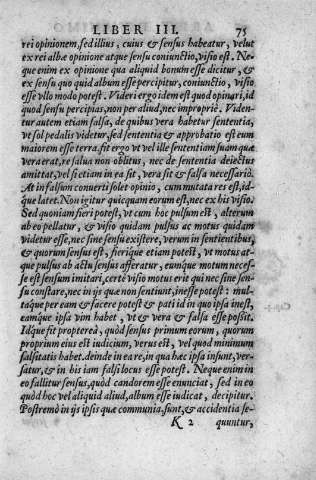 LIBER III. 75
rei opinionem, sed illius, cuius & sensus habeatur, velut
ex rei albæ opinione atque sensu coniunctio, visio est. Ne-
que enim ex opinione qua aliquid bonum esse dicitur, &
ex sensu quo quid album esse percipitur, coniunctio, visio
esse vllo modo potest. Videri ergo idem est quod opinari, id
quod sensu percipias, non per aliud, nec impropriè. Viden-
tur autem etiam falsa, de quibus vera habetur sententia,
vt sol pedalis videtur, sed sententia & approbatio est eum
maiorem esse terra. fit ergo vt vel ille sententiam suam quæ
vera erat, re salua non oblitus, nec de sententia deiectus
amittat, vel si etiam in ea sit, vera sit & falsa necessariò.
At in falsum conuerti solet opinio, cum mutata res est, id-
que latet. Non igitur quicquam eorum est, nec ex his visio.
Sed quoniam fieri potest, vt cum hoc pulsum est, alterum
ab eo pellatur, & visio quidam pulsus ac motus quidam
videtur esse, nec sine sensu existere, verum in sentientibus,
& quorum sensus est, fierique etiam potest, vt motus at-
que pulsus ab actu sensus afferatur, eumque motum neces-
se est sensum imitari, certè visio motus erit qui nec sine sen-
su constare, nec in ijs quæ non sentiunt, inesse potest: mul-
taque per eam & facere potest & pati id in quo ipsa inest,
eamque ipsa vim habet, vt & vera & falsa esse possit.
Idque fit propterea, quòd sensus primum eorum, quorum
proprium eius est iudicium, verus est, vel quod minimum
falsitatis habet. deinde in ea re, in qua hæc ipsa insunt, ver-
satur, & in his iam falsi locus esse potest. Neque enim in
eo fallitur sensus, quòd candorem esse enunciat, sed in eo
quòd hoc vel aliquid aliud, album esse iudicat, decipitur.
Postremò in ijs ipsis quæ communia sunt, & accidentia se-
K 2 quuntur,